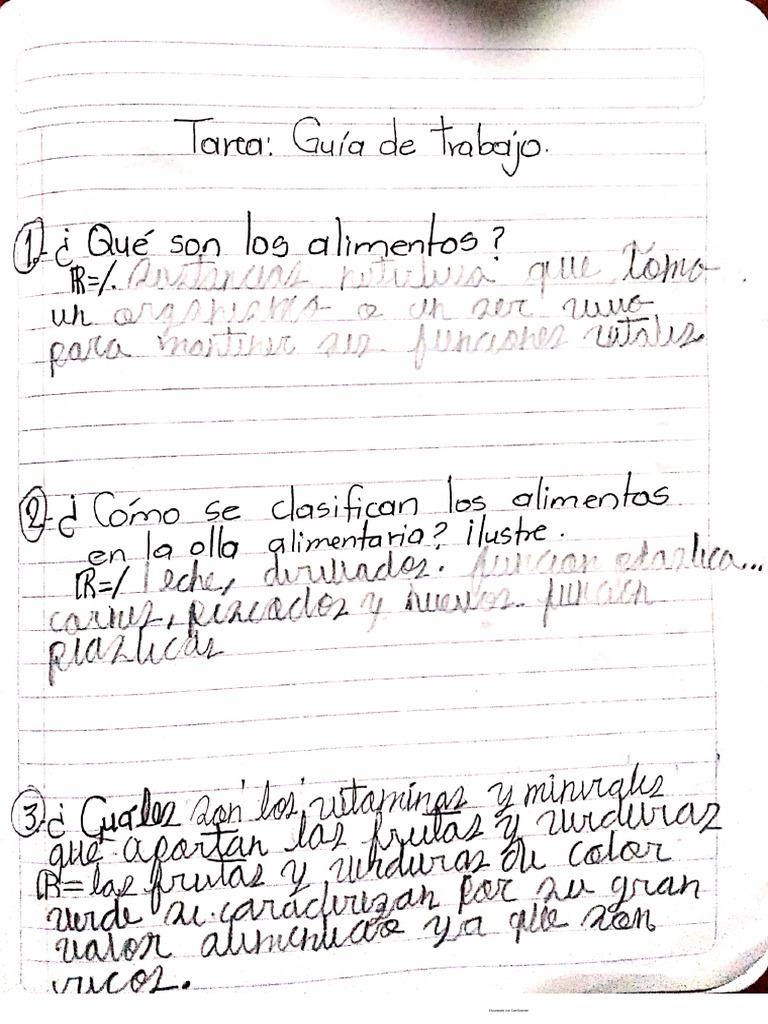 Tarea: Guía de trabajo.
1- ¿Qué son los alimentos?
R=/. Sustancias nutritiva que toma
un organismo o un ser vivo
para mantener sus funciones vitales
2- ¿Cómo se clasifican los alimentos
en la olla alimentaria? ilustre.
R=/ leche, derivados. función plastica...
carnes, pescados y huevos. función
plasticas
3- ¿Cuáles son los vitaminas y minerales
que aportan las frutas y verduras
R= las frutas y verduras de color
verde se caracterizan por su gran
valor alimenticio ya que son
ricos.
Escaneado con CamScanner